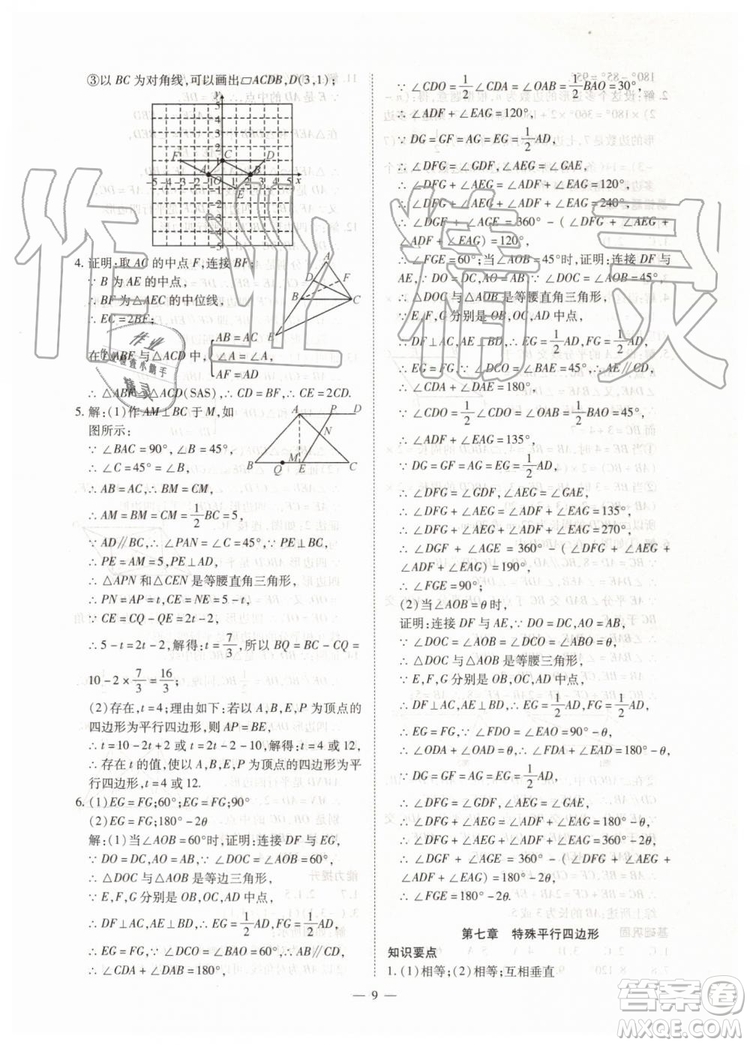 ③以 BC 为对角线,可以画出▱ACDB,D(3,1);
4. 证明:取 AC 的中点 F,连接 BF;
∵ B 为 AE 的中点,
∴ BF 为△AEC 的中位线,
∴ EC=2BF;
在△ABF 与△ACD 中,
AB=AC
AF=AD
∴ △ABF≌△ACD(SAS) ∴ CD=BF, ∴ CE=2CD.
5. 解:(1)作 AM⊥BC 于 M,如
图所示:
∵ ∠BAC=90°,∠B=45°,
∴ ∠C=45°=∠B,
∴ AB=AC,∴ BM=CM,
∴ AM=BM=CM=1/2BC=5,
∵ AD∥BC,∴ ∠PAN=∠C=45°,∵ PE⊥BC,
∴ PE=AM=5,PE⊥AD,
∴ △APN 和△CEN 是等腰直角三角形,
∴ PN=AP=t,CE=NE=5-t,
∵ CE=CQ-QE=2t-2,
∴ 5-t=2t-2,解得:t=7/3,所以 BQ=BC-CQ=
10-2×7/3=16/3;
(2)存在,t=4;理由如下:若以 A,B,E,P 为顶点的
四边形为平行四边形,则 AP=BE,
∴ t=10-2t+2 或 t=2t-2-10,解得:t=4 或 12,
∴ 存在 t 的值,使以 A,B,E,P 为顶点的四边形为平
行四边形,t=4 或 12.
6. (1)EG=FG;60°;EG=FG;90°
(2)EG=FG;180°-2θ
解:(1)当∠AOB=60°时,证明:连接 DF 与 AE,
∵ DO=DC,AO=AB,
∴ △CDO 与△AOB 是等腰三角形,
∵ E,F,G 分别是 OB,OC,AD 中点,
∴ DF⊥AC,AE⊥BD,∴ EG=1/2AD,FG=1/2AD,
∴ EG=FG,∵ ∠ODA+∠OAD=∠AOB=60°,
∴ ∠CDA+∠DAB=180°,
∵ ∠CDO=1/2∠CDA=∠OAB=1/2BAO=30°,
∴ ∠ADF+∠EAG=120°,
∵ DG=GF=AG=EG=1/2AD,
∴ ∠DFG=∠GDF,∠AEG=∠EAG,
∴ ∠DFG+∠AEG=∠ADF+∠EAG=120°,
∴ ∠DFG+∠AEG+∠ADF+∠EAG=240°,
∴ ∠DGF+∠AGE=360°-(∠DFG+∠AEG+
∠ADF+∠EAG)=120°,
∴ ∠FGE=60°,当∠AOB=45°时,证明:连接 DF
与 AE,∵ DO=DC,AO=AB,
∴ △CDO 与△AOB 是等腰三角形,
∵ E,F,G 分别是 OB,OC,AD 中点,
∴ DF⊥AC,AE⊥BD,∴ EG=1/2AD,FG=1/2AD,
∴ EG=FG,∵ ∠ODA+∠OAD=∠AOB=45°,
∴ ∠CDA+∠DAE=180°,
∵ ∠CDO=1/2∠CDA=∠OAB=1/2BAO=45°,
∴ ∠ADF+∠EAG=135°,
∵ DG=GF=AG=EG=1/2AD,
∴ ∠DFG=∠GDF,∠AEG=∠EAG,
∴ ∠DFG+∠AEG=∠ADF+∠EAG=135°,
∴ ∠DFG+∠AEG+∠ADF+∠EAG=270°,
∴ ∠DGF+∠AGE=360°-(∠DFG+∠AEG+∠ADF+
∠EAG)=190°,
∴ ∠FGE=90°;
(2)当∠AOB=θ时,
证明:连接 DF 与 AE,∵ DO=DC,AO=AB,
∴ △CDO 与△AOB 是等腰三角形,
∵ E,F,G 分别是 OB,OC,AD 中点,
∴ DF⊥AC,AE⊥BD,∴ EG=1/2AD,FG=1/2AD,
∴ EG=FG,∵ ∠AOB=θ,
∴ ∠ODA+∠OAD=θ,∴ ∠ADF+∠EAG=90°+θ,
∵ DG=GF=AG=EG=1/2AD,
∴ ∠DFG=∠GDF,∠AEG=∠EAG,
∴ ∠DFG+∠AEG=∠ADF+∠EAG=180°-θ,
∴ ∠DFG+∠AEG+∠ADF+∠EAG=360°-2θ,
∴ ∠DGF+∠AGE=360°-(∠DFG+∠AEG+
∠ADF+∠EAG)=180°-2θ,
∴ ∠FGE=180°-2θ.
第七章 特殊平行四边形
知识要点
1. (1)相等;(2)相等;互相垂直
— 9 —